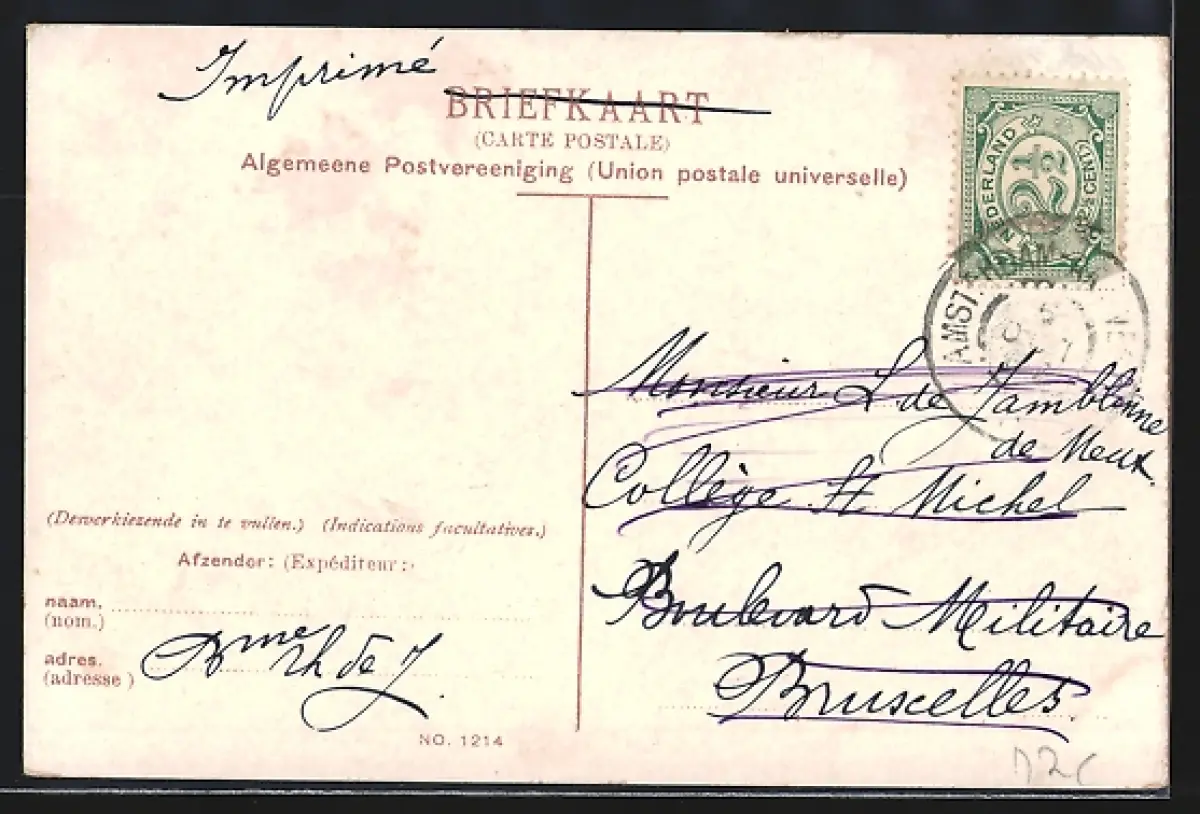 Imprimé
BRIEFKAART
(CARTE POSTALE)
Algemeene Postvereeniging (Union postale universelle)
NEDERLAND
2½
CENT
AMST
Monsieur L de Jamblinne
de Meux.
Collège St. Michel
Boulevard Militaire
Bruxelles.
(Desverkiezende in te vullen.) (Indications facultatives.)
Afzender: (Expéditeur:)
naam.
(nom.)
adres.
(adresse)
de J.
NO. 1214